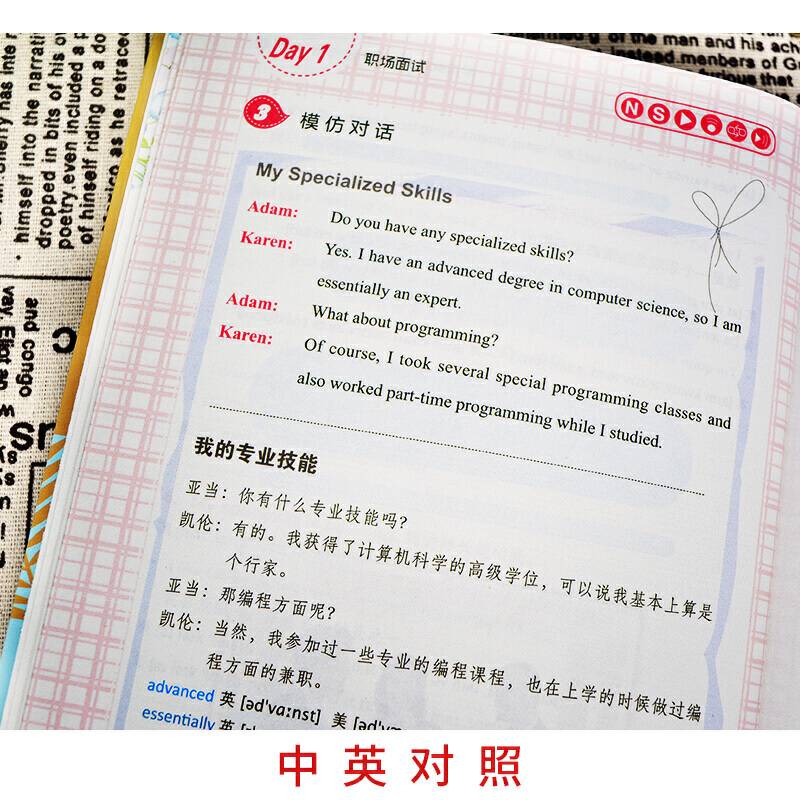 Day 1
职场面试
3 模仿对话
N S
My Specialized Skills
Adam: Do you have any specialized skills?
Karen: Yes. I have an advanced degree in computer science, so I am
essentially an expert.
Adam: What about programming?
Karen: Of course, I took several special programming classes and
also worked part-time programming while I studied.
我的专业技能
亚当：你有什么专业技能吗？
凯伦：有的。我获得了计算机科学的高级学位，可以说我基本上算是
个行家。
亚当：那编程方面呢？
凯伦：当然，我参加过一些专业的编程课程，也在上学的时候做过编
程方面的兼职。
advanced 英 [əd'vɑːnst] 美
essentially 英
himself into the narrati
dropped in bits of his ow
poetry,even included a p
of hinself riding on a do
as he retraced
and congo
vay. Eliot an
of the man and his ach
instead.menbers of Gr
that
中英对照